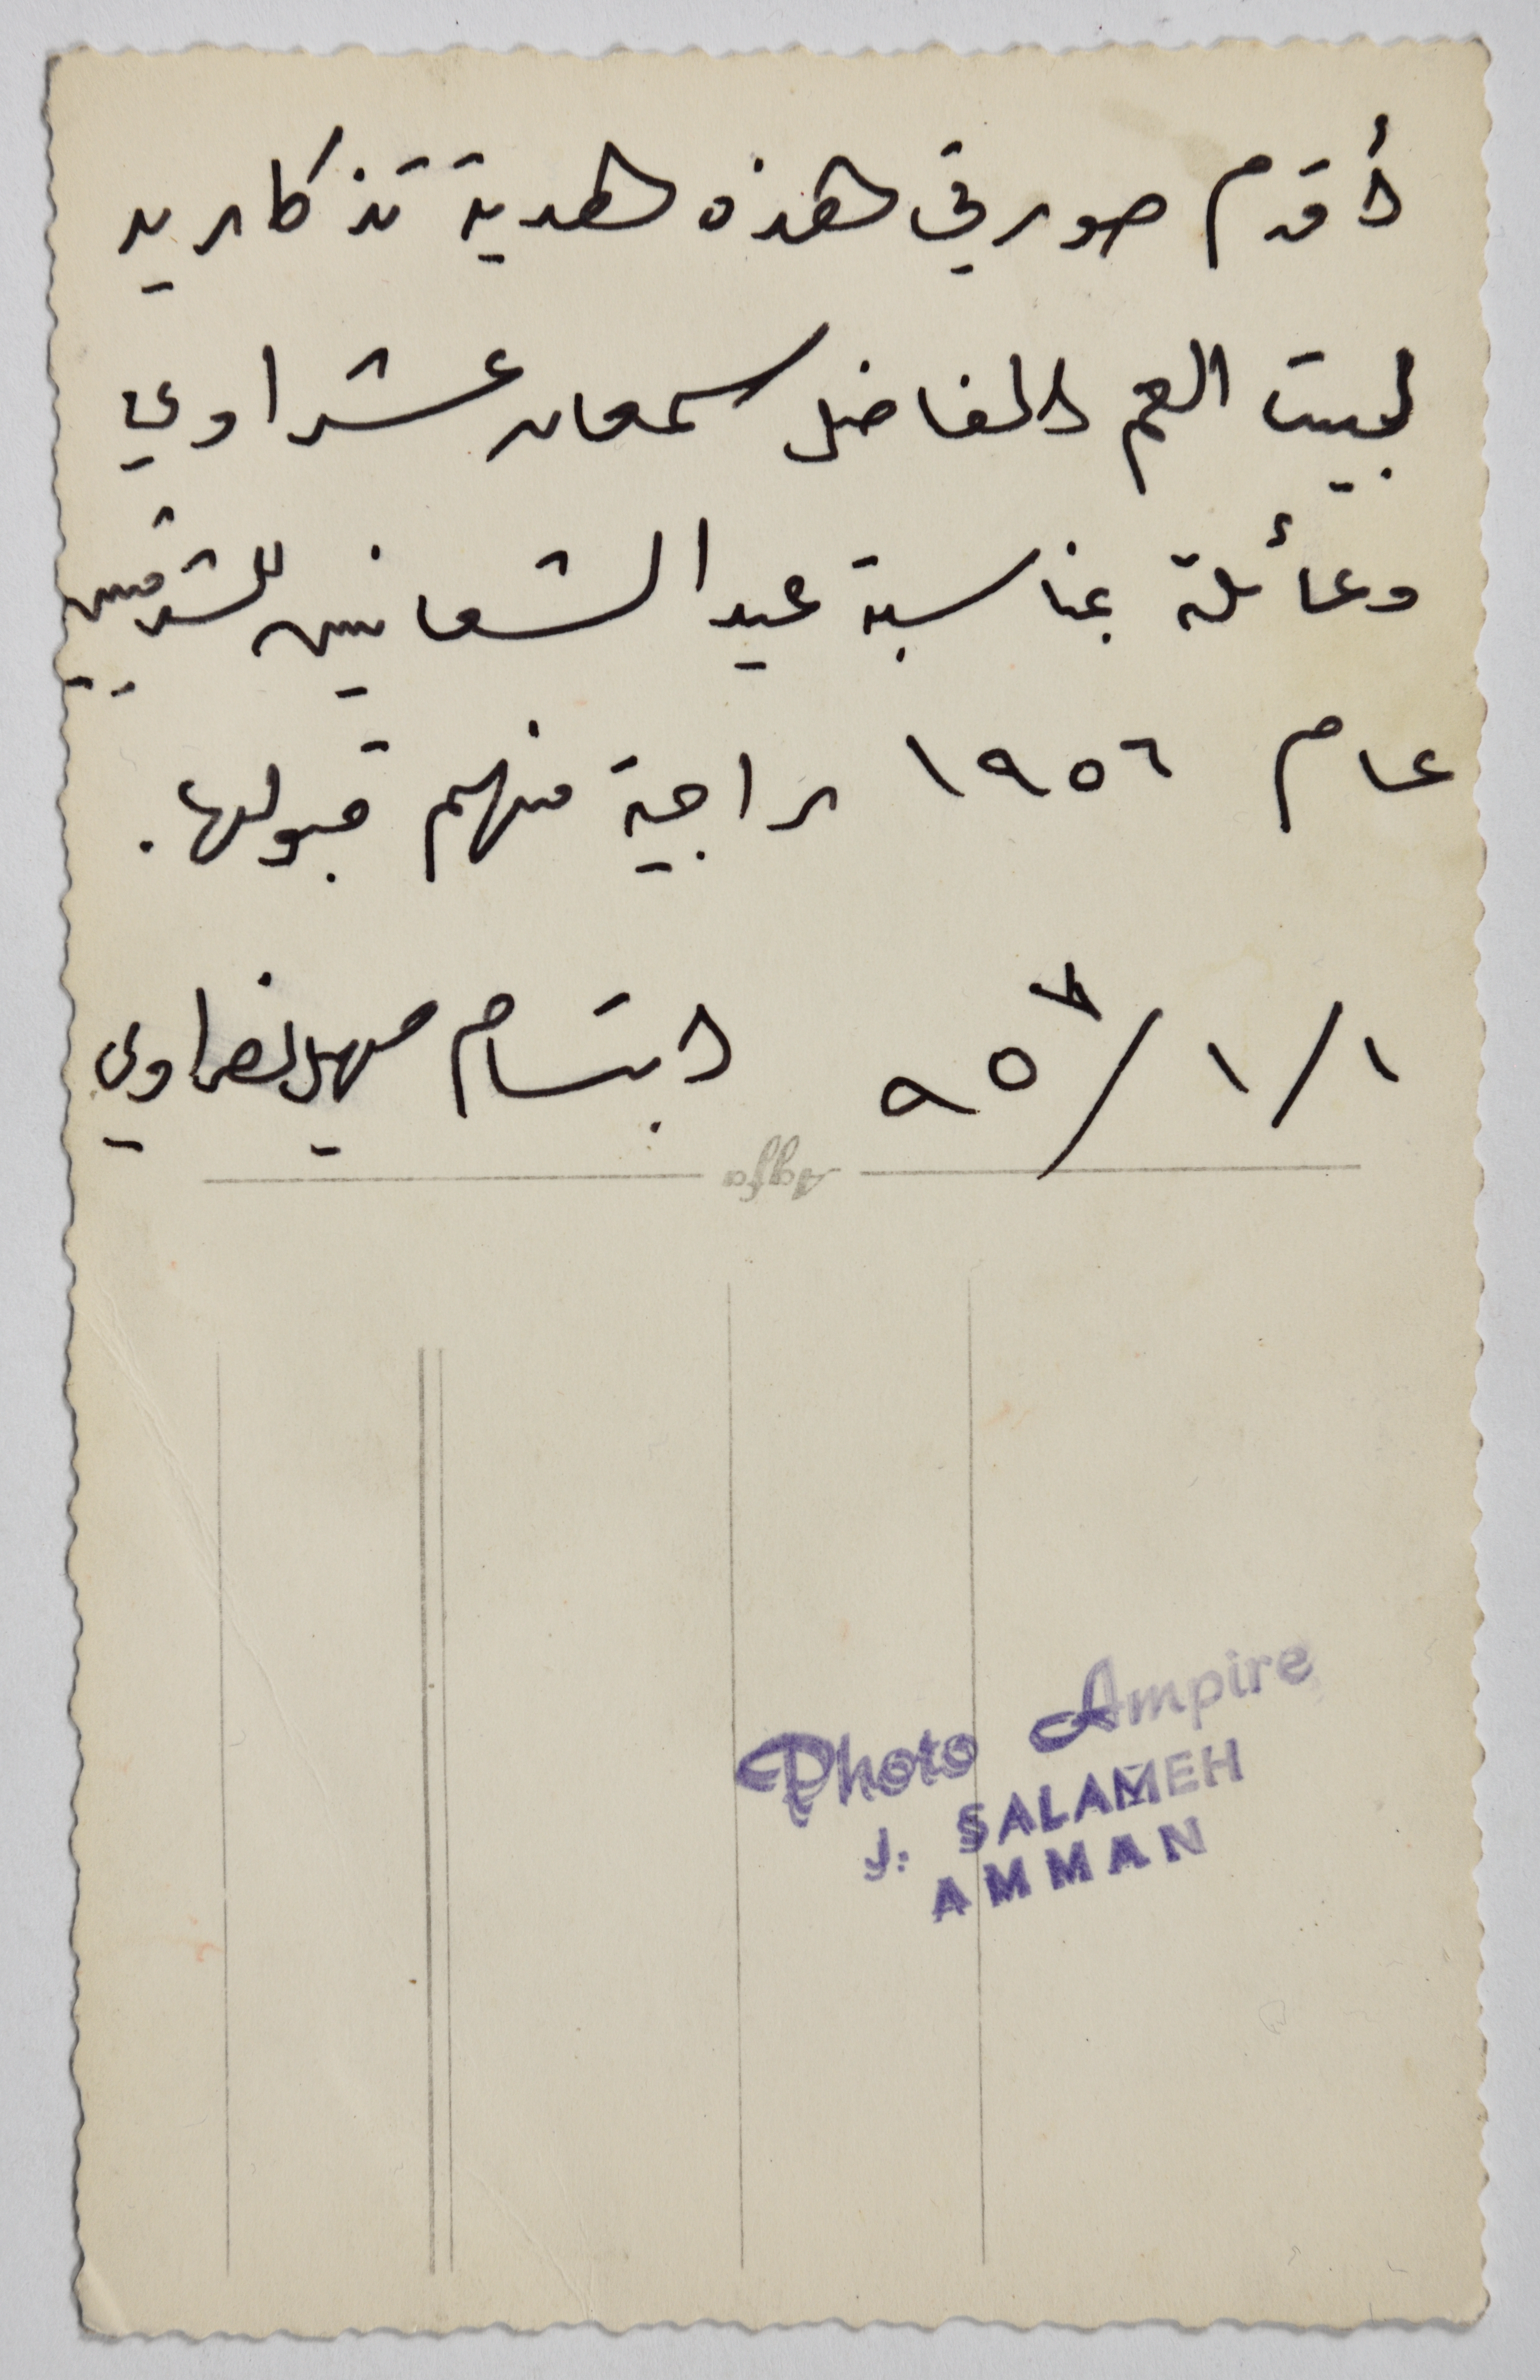 أقدم صورتي هذه هدية تذكاريه
لبيت العم الفاضل سمعان عشراوي
وعائلة بمناسبة عيد الشعانين للشرقيين
عام ١٩٥٦ راجية منهم قبولها.
١/١/ ٩٥ ابتسام
Agfa
Photo Ampire
J. SALAMEH
AMMAN